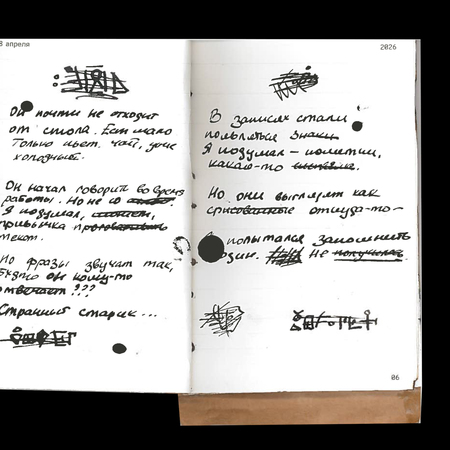 8 апреля
Он почти не отходит
от стола. Ест мало
Только пьет чай, уже
холодный.
Он начал говорить во время
работы. Но не со
Я подумал,
привычка
текст.
Но фразы звучат так,
будто он кому-то
отвечает ???
Странный старик...
2026
В записях стали
появляться знаки
Я подумал - пометки,
какая-то
Но они выглядят как
срисованные откуда-то-
попытался запомнить
один. Не получилось.
06